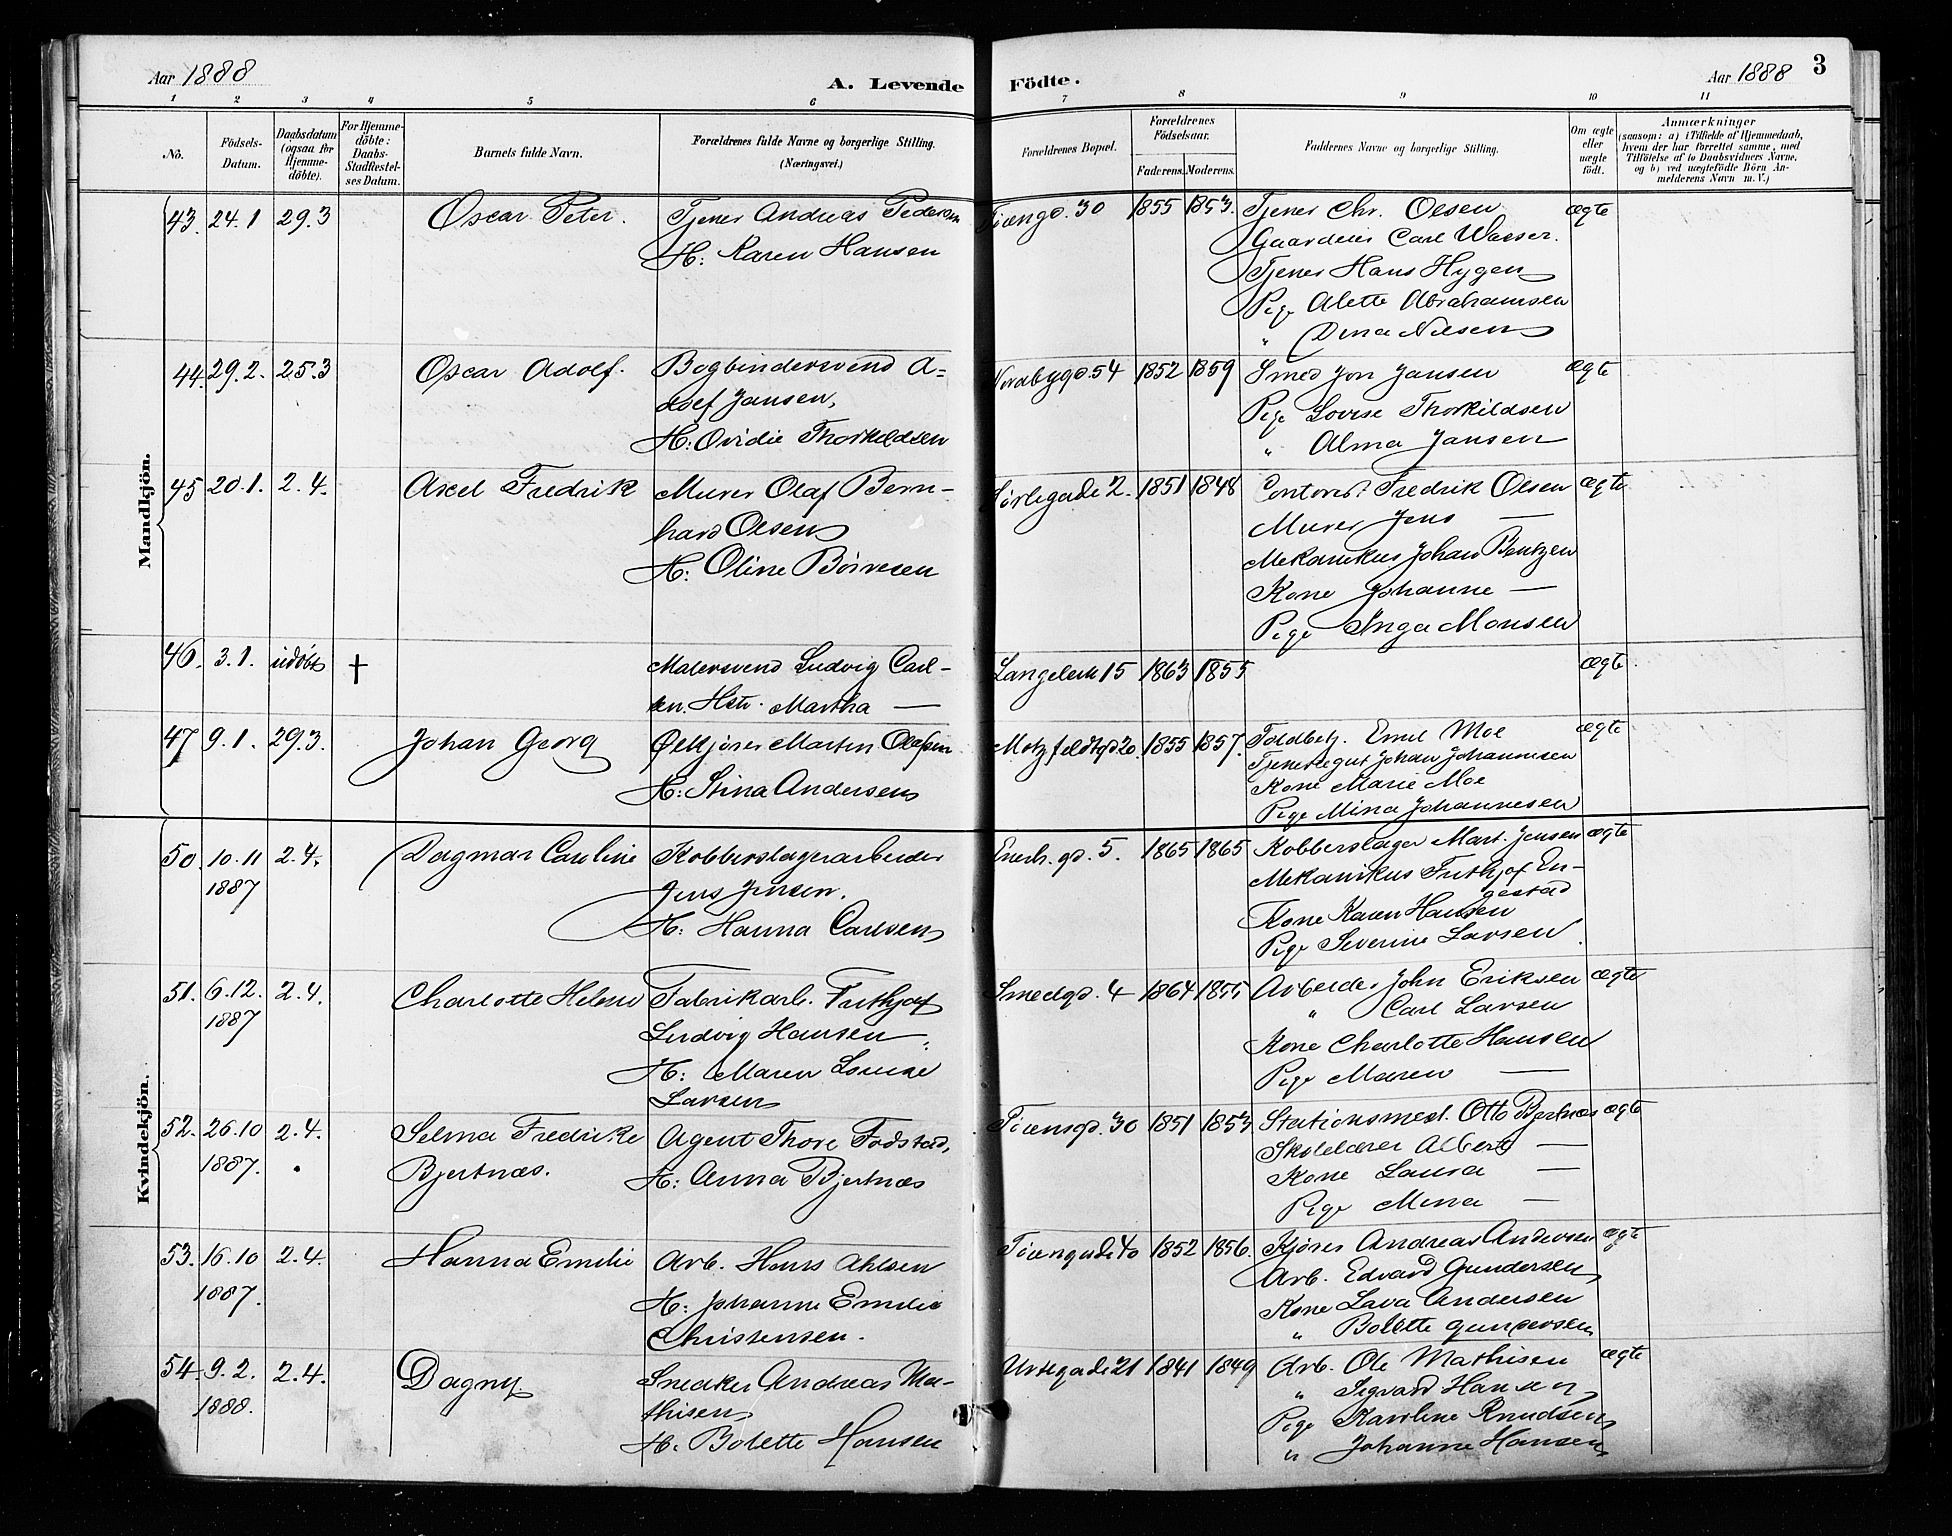 Aar 1888
A. Levende Födte.
Aar 1888
3
1 2 3 4 5 6 7 8 9 10 11
No.
Födsels-
Datum.
Daabsdatum
(ogsaa for
Hjemme-
döbte).
For Hjemme-
döbte:
Daabs-
Stadfæstel-
ses Datum.
Barnets fulde Navn.
Forældrenes fulde Navne og borgerlige Stilling.
(Næringsvei.)
Forældrenes Bopæl.
Forældrenes
Födselsaar.
Faderens. Moderens.
Faddernes Navne og borgerlige Stilling.
Om ægte
eller
uægte
födt.
Anmærkninger
(saasom: a) i Tilfælde af Hjemmedaab,
hvem der har forrettet samme, med
Tilföielse af to Daabsvidners Navne,
og b) ved uægtefödte Börn An-
melderens Navn m. V.)
Mandkjön.
43. 24.1 29.3 Oscar Peter. Tjener Andreas Pedersen Tøiengd. 30 1855 1853. Tjener Chr. Olsen ægte
H: Karen Hansen Gaardeier Carl Wasser.
Tjener Hans Hygen
Pige Alette Abrahamsen
" Dina Nilsen
44. 29.2. 25.3 Oscar Adolf. Bogbindersvend A- Nordbygd. 54 1852 1859 Smed Jon Jansen ægte
dolf Jansen, Pige Lovise Thorkildsen
H: Ovidie Thorkildsen " Alma Jansen
45 20.1. 2.4. Axel Fredrik Murer Olaf Bern- Sørligade 2. 1851 1848 Contorist Fredrik Olsen ægte
hard Olsen Murer Jens —
H: Oline Børresen Mekanikus Johan Bentzen
Kone Johanne —
Pige Inga Monsen
46. 3.1. udøbt † Malersvend Ludvig Carl- Langeleik 15 1863 1855 ægte
sen. Hstr. Martha —
47 9.1. 29.3. Johan Georg Ølkjører Martin Olafsen Motzfeldtgd 20. 1855 1857. Toldbetj. Emil Moe ægte
H: Stina Andersen Tjenestegut Johan Johannesen
Kone Marie Moe
Pige Mina Johannesen
Kvindekjön.
50. 10.11 2.4. Dagmar Caroline Kobberslagerarbeider Enerh. gd. 5. 1865 1865 Kobberslager Mart. Jensen ægte
1887 Jens Jensen. Mekanikus Frithjof En-
gestad
H: Hanna Carlsen Kone Karen Hansen
Pige Severine Larsen.
51. 6.12. 2.4. Charlotte Helene Fabrikarb. Frithjof Smedgd. 4 1864 1855 Arbeider John Eriksen ægte
1887 Ludvig Hansen " Carl Larsen
H: Maren Louise Kone Charlotte Hansen
Larsen Pige Maren —
52. 26.10 2.4. Selma Fredrikke Agent Thore Fodstad, Tøiensgd. 30 1851 1853 Stationsmest. Otto Bjertnæs ægte
1887. Bjertnæs. H: Anna Bjertnæs Skolelærer Albert —
Kone Laura —
Pige Mina —
53. 16.10 2.4. Hanna Emilie Arb. Hans Ahlsen Tøiengade 40 1852 1856. Kjører Andreas Andersen ægte
1887. H: Johanne Emilie Arb. Edvard Gundersen
Christensen. Kone Lava Andersen
" Bolette Gundersen
54. 9.2. 2.4. Dagny Snedker Andreas Ma- Urtegade 21 1841 1849 Arb. Ole Mathisen ægte
1888. thisen " Sigvard Hansen
H. Bolette Hansen Pige Karoline Knudsen
" Johanne Hansen